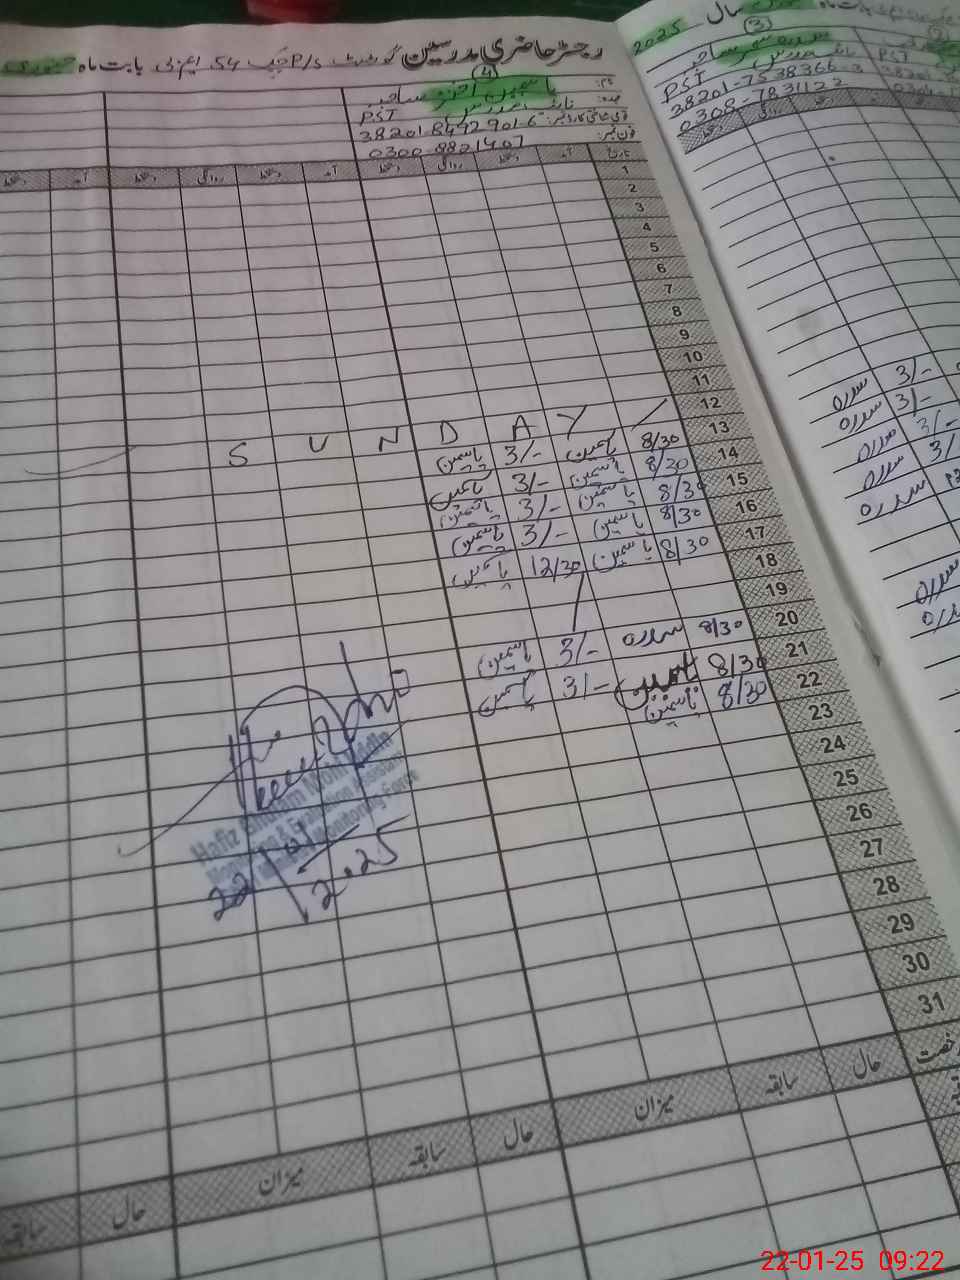 رجسٹر حاضری مدرسین گورنمنٹ P/S چک 54 ایم ڈی بابت ماہ جنوری
(4)
نام: یاسمین اختر صاحبہ
عہدہ: نائب مدرس PST
قومی شناختی کارڈ نمبر: 38201-8492901-6
فون نمبر: 0300-8821407
تاریخ آمد دستخط روانگی دستخط آمد دستخط روانگی دستخط آمد دستخط
1
2
3
4
5
6
7
8
9
10
11
12 S U N D A Y
13 8/30 یاسمین 3/- یاسمین
14 8/30 یاسمین 3/- یاسمین
15 8/30 یاسمین 3/- یاسمین
16 8/30 یاسمین 3/- یاسمین
17 8/30 یاسمین 12/30 یاسمین
18
19
20 8/30 سدرہ 3/- یاسمین
21 8/30 یاسمین 3/- یاسمین
22 8/30 یاسمین
23
24
25
26
27
28
29
30
31
رخصت حال سابقہ میزان حال سابقہ میزان حال سابقہ
Hafiz Ghulam Mohi Uddin
Monitoring & Evaluation Assistant
Monitoring Force
22/01/2025
2025 سال
(3)
PST
38201-7538366-3
0308-7831122
(2)
PST
38201
سدرہ 3/-
سدرہ 3/-
سدرہ 3/-
سدرہ 3/-
سدرہ
سدرہ
سدرہ
22-01-25 09:22